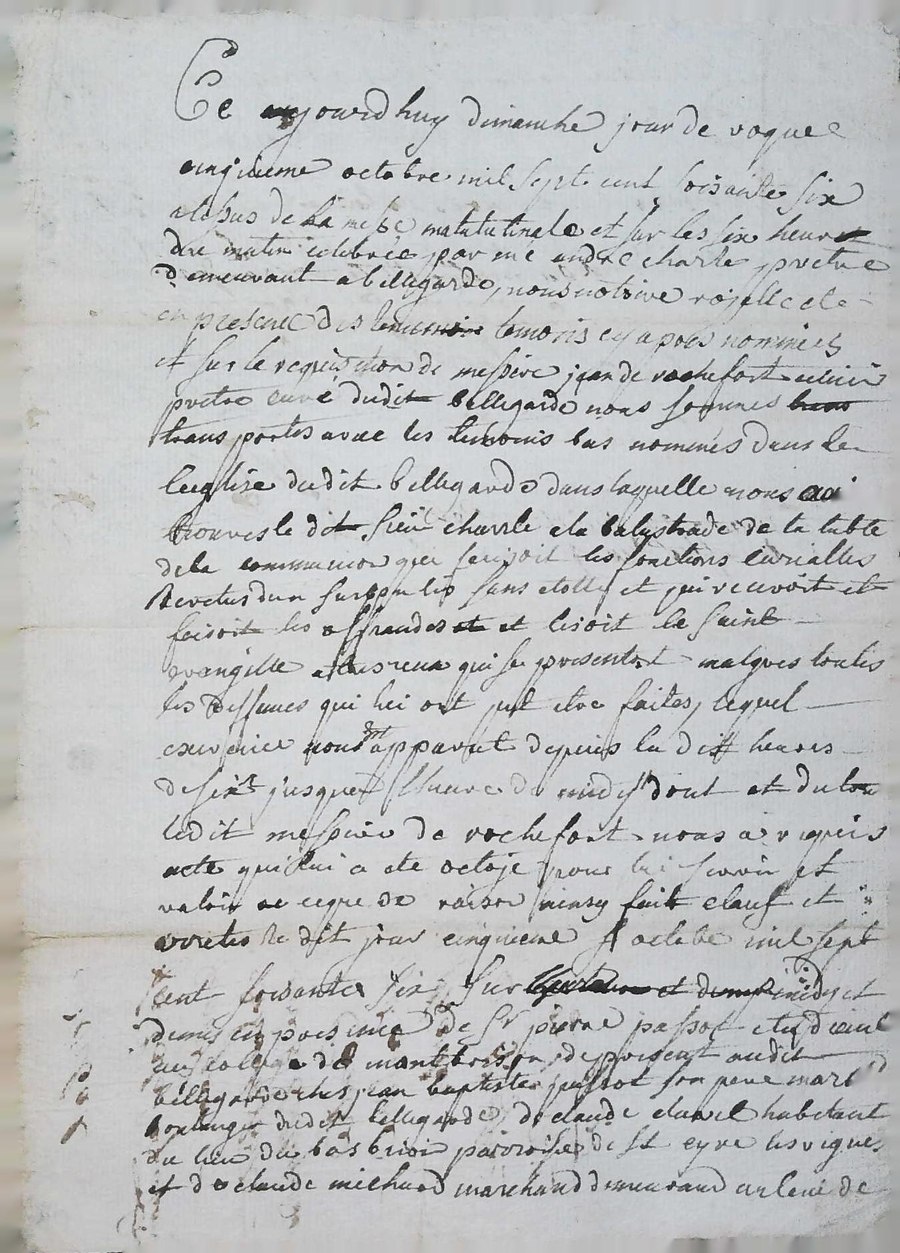 Ce aujourdhuy dimanche jour de vogue
cinquieme octobre mil sept cent soisante six
a lissus de la messe matutinale et sur les six heures
du matin celebrée par me andre charle pretre
demeurant a bellegarde, nous notaire royal
en presence des temoins cy apres nommées
et sur le requisition de messire jean de rochefort
pretre curé dudit bellegarde nous sommes
transportes avec les temoins bas nommés dans
leeglise dudit bellegarde dans laquelle nous
trouves le dit sieur charle a la balustrade de la table
de la communion qui faisoit les fonctions curialles
revetus dun surpulis sans etolle et qui recevoit et
faisoit les offrandes et lisoit le saint
evangille a ceux qui se presentoit malgres toutes
les deffances qui lui ont put etre faites, lequel
exercice nous apparut depuis la ditte heures
de six jusque lheure de midy dont et du tou
ledit messire de rochefort nous a requis
acte qui lui a ete octoje pour lui servir et
valoir ce que de raison ainsy fait clauf et
arretes le dit jour cinquieme octobre mil sept
cent soisante six sur midy et
demis en presence de Sr pierre passot etudiant
au college de montbrison, de present audit
bellegarde ches jean baptiste passot son pere mard
boulanger dudit bellegarde, de claude clavel habitant
du lieu du bas paroisse de st cyre les vignes
et de claude michard marchand demeurand au lieu de